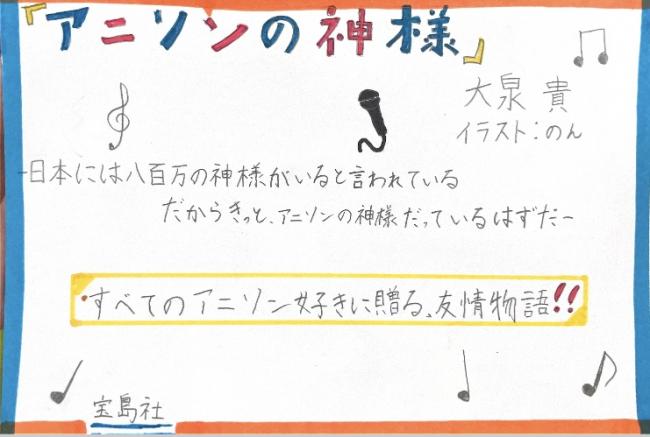 『アニソンの神様』
大泉 貴
イラスト:のん
-日本には八百万の神様がいると言われている
だからきっと、アニソンの神様だっているはずだー
すべてのアニソン好きに贈る、友情物語!!
宝島社